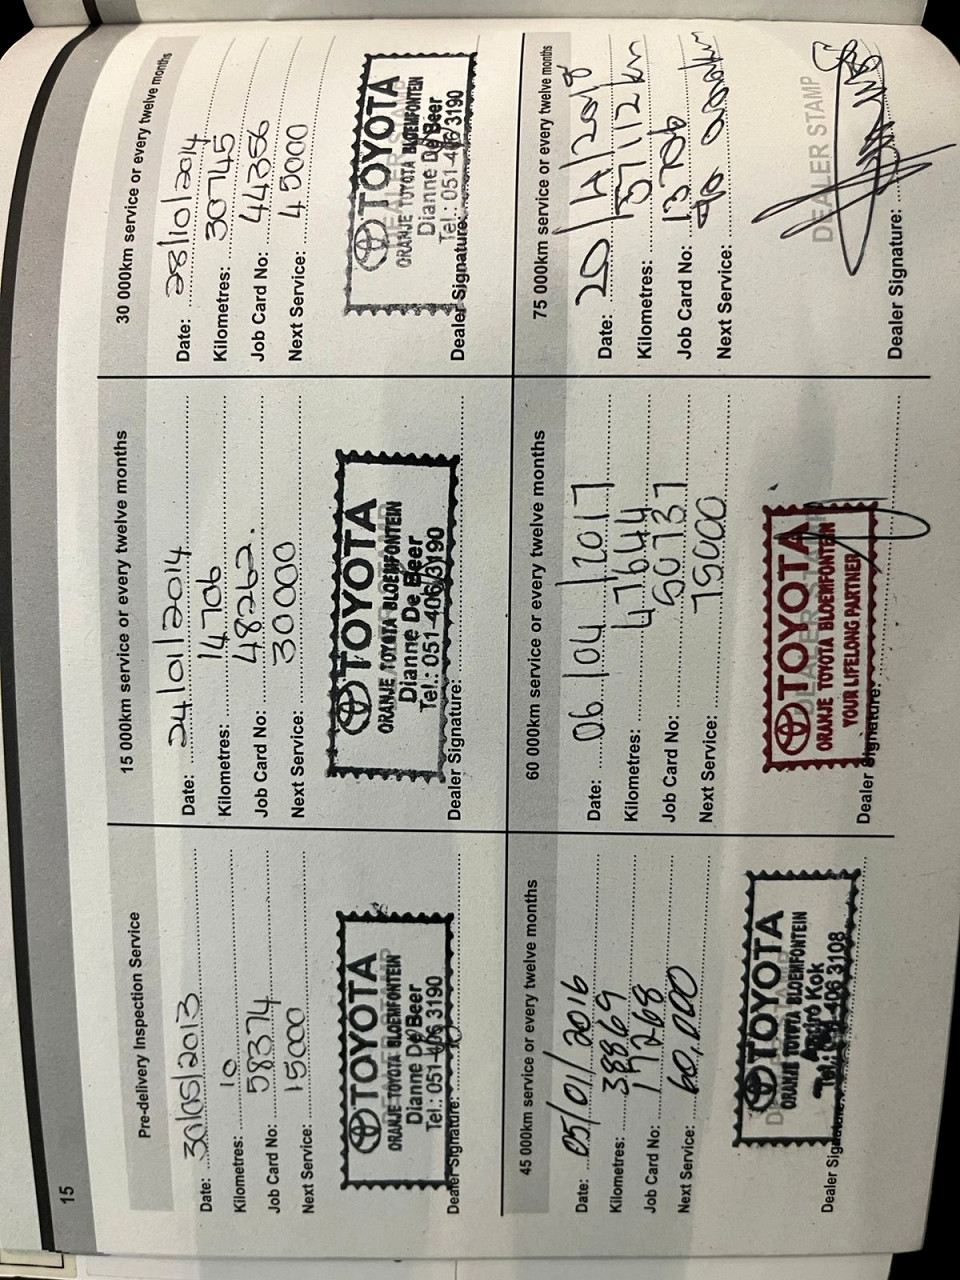 15
Pre-delivery Inspection Service
Date: 30/05/2013
Kilometres: 10
Job Card No: 58374
Next Service: 15000
DEALER STAMP
TOYOTA
ORANJE TOYOTA BLOEMFONTEIN
Dianne De Beer
Tel.: 051-406 3190
Dealer Signature:
15 000km service or every twelve months
Date: 24/01/2014
Kilometres: 14706
Job Card No: 48262.
Next Service: 30000
DEALER STAMP
TOYOTA
ORANJE TOYOTA BLOEMFONTEIN
Dianne De Beer
Tel.: 051-406 3190
Dealer Signature:
30 000km service or every twelve months
Date: 28/10/2014
Kilometres: 30745
Job Card No: 44356
Next Service: 45000
DEALER STAMP
TOYOTA
ORANJE TOYOTA BLOEMFONTEIN
Dianne De Beer
Tel.: 051-406 3190
Dealer Signature:
45 000km service or every twelve months
Date: 05/01/2016
Kilometres: 38869
Job Card No: 17268
Next Service: 60,000
DEALER STAMP
TOYOTA
ORANJE TOYOTA BLOEMFONTEIN
André Kok
Tel.: 406 3108
Dealer Signature:
60 000km service or every twelve months
Date: 06/04/2017
Kilometres: 47644
Job Card No: 50737
Next Service: 75000
DEALER STAMP
TOYOTA
ORANJE TOYOTA BLOEMFONTEIN
YOUR LIFELONG PARTNER
Dealer Signature:
75 000km service or every twelve months
Date: 20/ /2018
Kilometres: 57112 km
Job Card No: 13706
Next Service: 90 000km
DEALER STAMP
Dealer Signature: